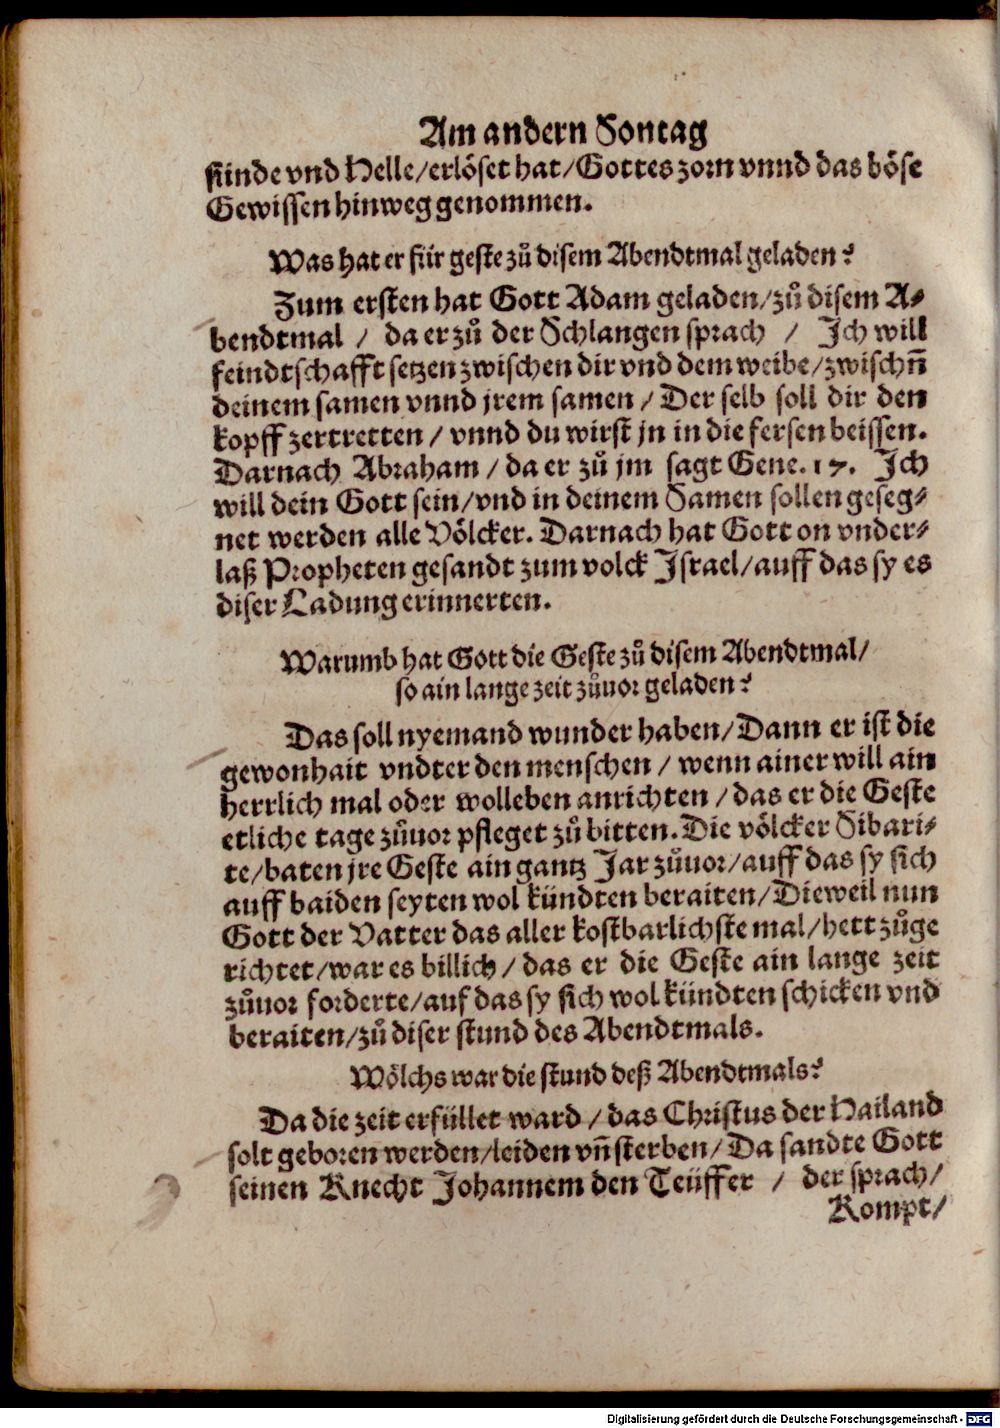 Am andern Sontag
sünde vnd Helle/erlöset hat/Gottes zorn vnnd das böse
Gewissen hinweg genommen.
Was hat er für geste zů disem Abendtmal geladen?
Zum ersten hat Gott Adam geladen/zů disem A-
bendtmal / da er zů der Schlangen sprach / Ich will
feindtschafft setzen zwischen dir vnd dem weibe/zwischñ
deinem samen vnnd jrem samen / Der selb soll dir den
kopff zertretten / vnnd du wirst jn in die fersen beissen.
Darnach Abraham / da er zů jm sagt Gene. 17. Ich
will dein Gott sein/vnd in deinem Samen sollen geseg-
net werden alle Völcker. Darnach hat Gott on vnder-
laß Propheten gesandt zum volck Israel/auff das sy es
diser Ladung erinnerten.
Warumb hat Gott die Geste zů disem Abendtmal/
so ain lange zeit zůuor geladen?
Das soll nyemand wunder haben/Dann er ist die
gewonhait vndter den menschen / wenn ainer will ain
herrlich mal oder wolleben anrichten / das er die Geste
etliche tage zůuor pfleget zů bitten. Die völcker Sibari-
te/baten jre Geste ain gantz Jar zůuor/auff das sy sich
auff baiden seyten wol kündten beraiten/Dieweil nun
Gott der Vatter das aller kostbarlichste mal/hett zůge
richtet/war es billich / das er die Geste ain lange zeit
zůuor forderte/auf das sy sich wol kündten schicken vnd
beraiten/zů diser stund des Abendtmals.
Wölchs war die stund deß Abendtmals?
Da die zeit erfüllet ward / das Christus der Hailand
solt geboren werden/leiden vñ sterben/Da sandte Gott
seinen Knecht Johannem den Teüffer / der sprach/
Kompt/
Digitalisierung gefördert durch die Deutsche Forschungsgemeinschaft - DFG